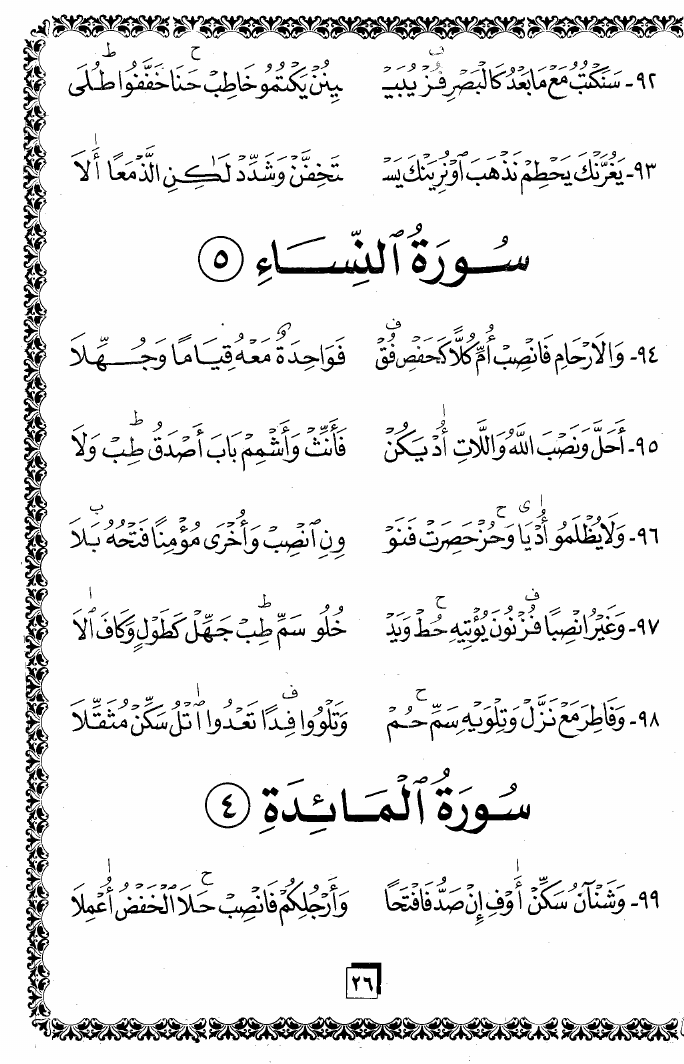 ٩٢- سَنَكْتُبُ مَعْ مَا بَعْدُ كَالْبَصْرِ فُـزْ يُبَيْـ يِنُنْ يَكْتُمُو خَاطِبْ حَنَا خَفَّفُوا طُلَى
٩٣- يَغُرَّنْكَ يَحْطِمْ نَذْهَبَ اَوْ نُرِيَنْكَ يَسْـ تَخِفَّنْ وَشَدِّدْ لَـٰكِنِ الَّذْ مَعًا أَلَا
سُورَةُ ٱلنِّسَاءِ (٥)
٩٤- وَالَارْحَامِ فَانْصِبْ أُمِّ كُلًّا كَحَفْصِ فُقْ فَوَاحِدَةٌ مَعْهُ قِيَامًا وَجُهِّلَا
٩٥- أَحَلَّ وَنَصْبَ اللَّهُ وَاللَّاتِ أُدْ يَكُنْ فَأَنِّثْ وَأَشْمِمْ بَابَ أَصْدَقُ طِبْ وَلَا
٩٦- وَلَا يُظْلَمُو أُدْ يَا وَحُزْ حَصِرَتْ فَنَوْ وِنِ ٱنْصِبْ وَأُخْرَى مُؤْمِنًا فَتْحُهُ بَلَا
٩٧- وَغَيْرُ انْصِبًا فُزْ نُونَ يُؤْتِيهِ حُطْ وَيَدْ خُلُو سَمِّ طِبْ جَهِّلْ كَطَوْلٍ وَكَافَ ٱلَا
٩٨- وَفَاطِرَ مَعْ نَزَّلْ وَتِلْوَيْهِ سَمِّ حُمْ وَتَلْوُوا فِدًا تَعْدُوا ٱتْلُ سَكِّنْ مُثَقِّلَا
سُورَةُ ٱلْمَائِدَةِ (٤)
٩٩- وَشَنْآنُ سَكِّنْ أَوْفِ إِنْ صَدُّ فَافْتَحًا وَأَرْجُلِكُمْ فَانْصِبْ حَلَا الْخَفْضُ أُعْمِلَا
٢٦